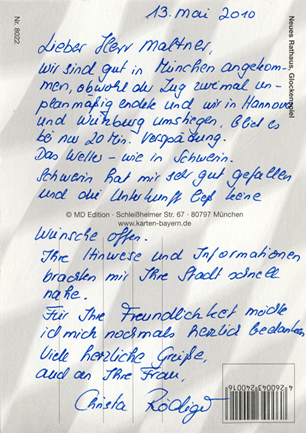 13. Mai 2010
Lieber Herr Maltner,
wir sind gut in München angekom-
men, obwohl der Zug zweimal un-
planmäßig endete und wir in Hannover
und Würzburg umstiegen, blieb es
bei nur 20 Min. Verspätung.
Das Wetter – wie in Schwerin.
Schwerin hat mir sehr gut gefallen
und die Unterkunft ließ keine
Wünsche offen.
Ihre Hinweise und Informationen
brachten mir Ihre Stadt schnell
nahe.
Für Ihre Freundlichkeit möchte
ich mich nochmals herzlich bedanken
Viele herzliche Grüße,
auch an Ihre Frau,
Christa Rödiger
© MD Edition · Schleißheimer Str. 67 · 80797 München
www.karten-bayern.de
Nr. 8022
Neues Rathaus, Glockenspiel
4260043240016